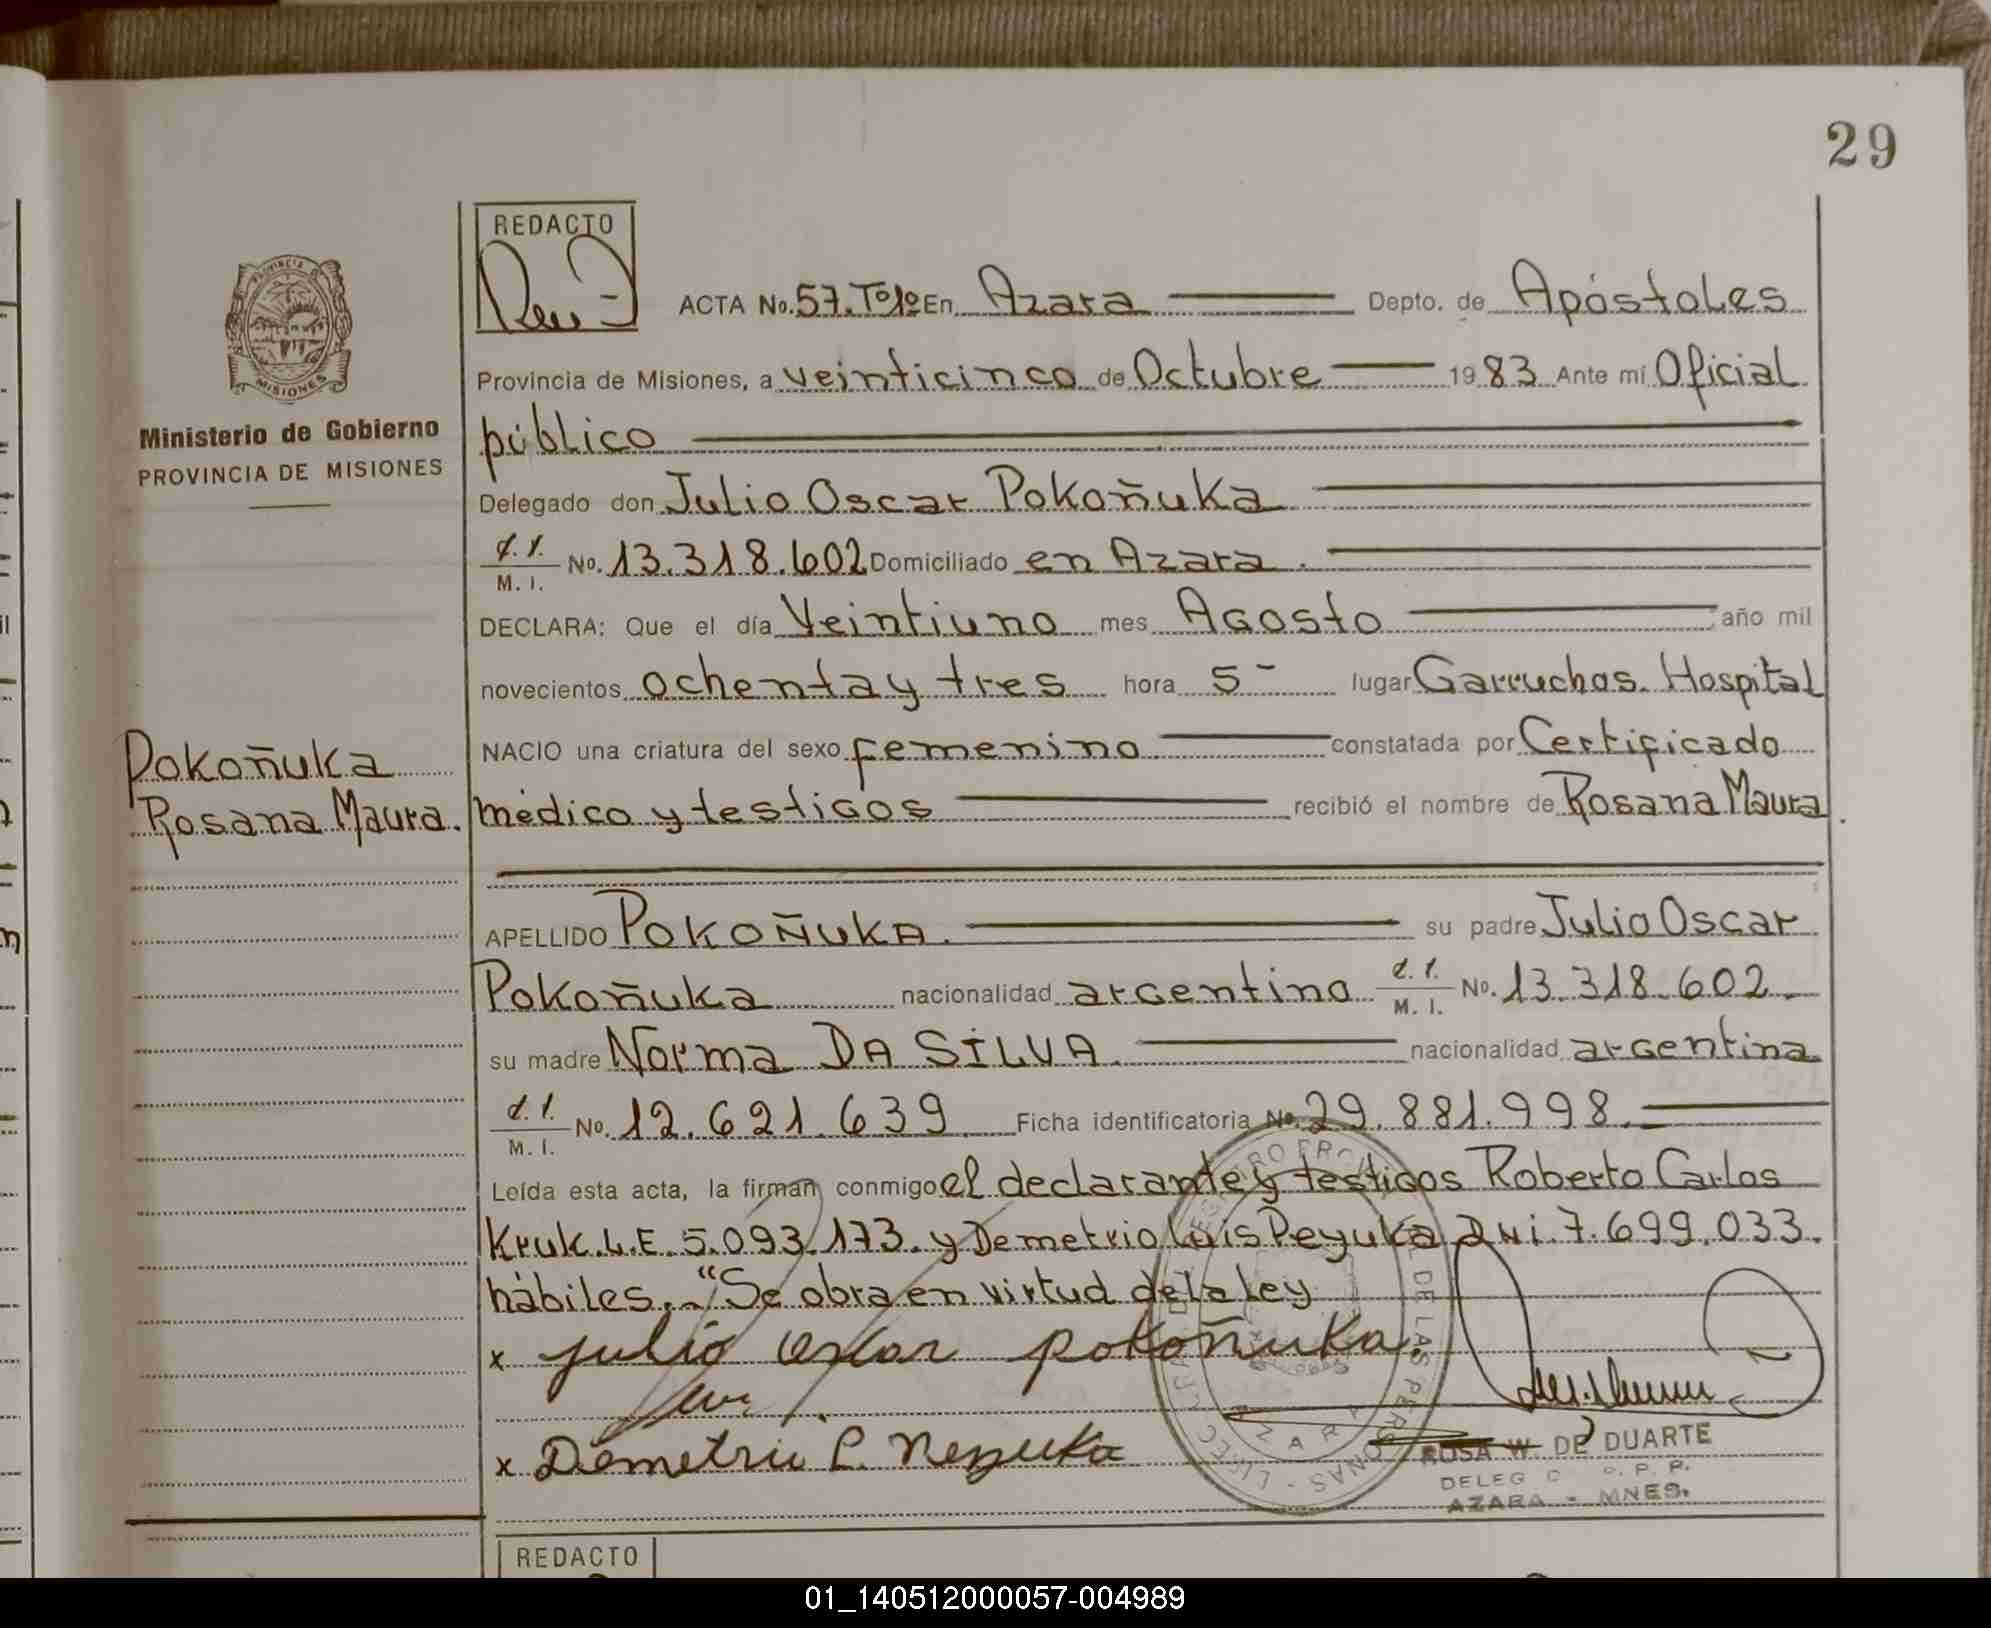 29
REDACTO
ACTA No. 57. Tº 1º En Azara Depto. de Apóstoles
PROVINCIA
MISIONES
Provincia de Misiones, a veinticinco de Octubre 1983 Ante mí Oficial
Ministerio de Gobierno
PROVINCIA DE MISIONES
público
Delegado don Julio Oscar Pokoñuka
d.i.
M. I. No. 13.318.602 Domiciliado en Azara.
DECLARA: Que el día Veintiuno mes Agosto año mil
novecientos ochenta y tres hora 5- lugar Garruchos. Hospital
NACIO una criatura del sexo femenino constatada por Certificado
Pokoñuka
Rosana Maura.
médico y testigos recibió el nombre de Rosana Maura.
APELLIDO POKOÑUKA. su padre Julio Oscar
Pokoñuka nacionalidad argentino d.i. M. I. No. 13.318.602.
su madre Norma DA SILVA. nacionalidad argentina
d.i. M. I. No. 12.621.639. Ficha identificatoria No. 29.881.998.
Leída esta acta, la firman conmigo el declarante y testigos Roberto Carlos
Kruk. L.E. 5.093.173. y Demetrio Luis Peyuka Dni. 7.699.033.
hábiles. "Se obra en virtud de la ley
x julio oscar pokoñuka.
x Demetrio L.
AZARA
ROSA W. DE DUARTE
DELEG R. P. P.
AZARA - MNES.
REDACTO
01_140512000057-004989